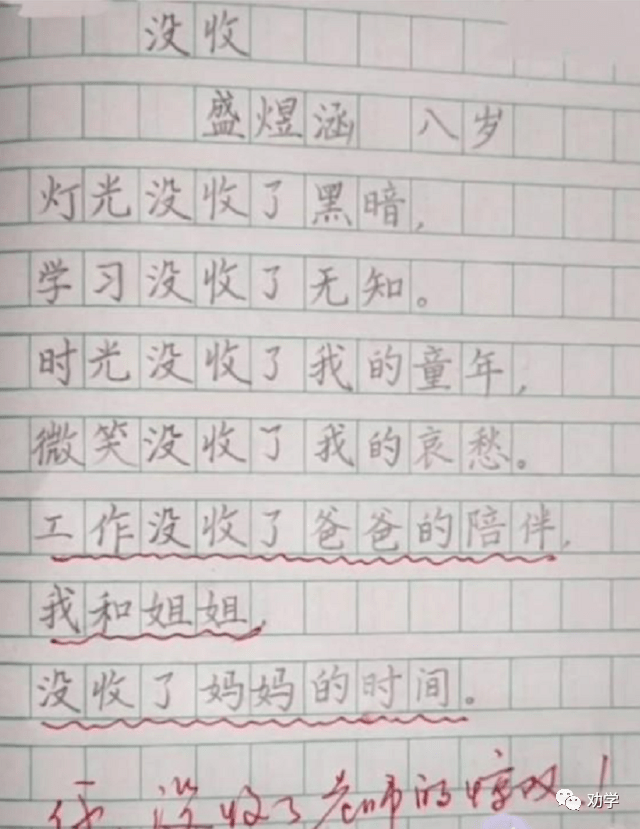 没收
盛煜涵 八岁
灯光没收了黑暗，
学习没收了无知。
时光没收了我的童年，
微笑没收了我的哀愁。
工作没收了爸爸的陪伴，
我和姐姐，
没收了妈妈的时间。
你没收了老师的惊叹！
劝学